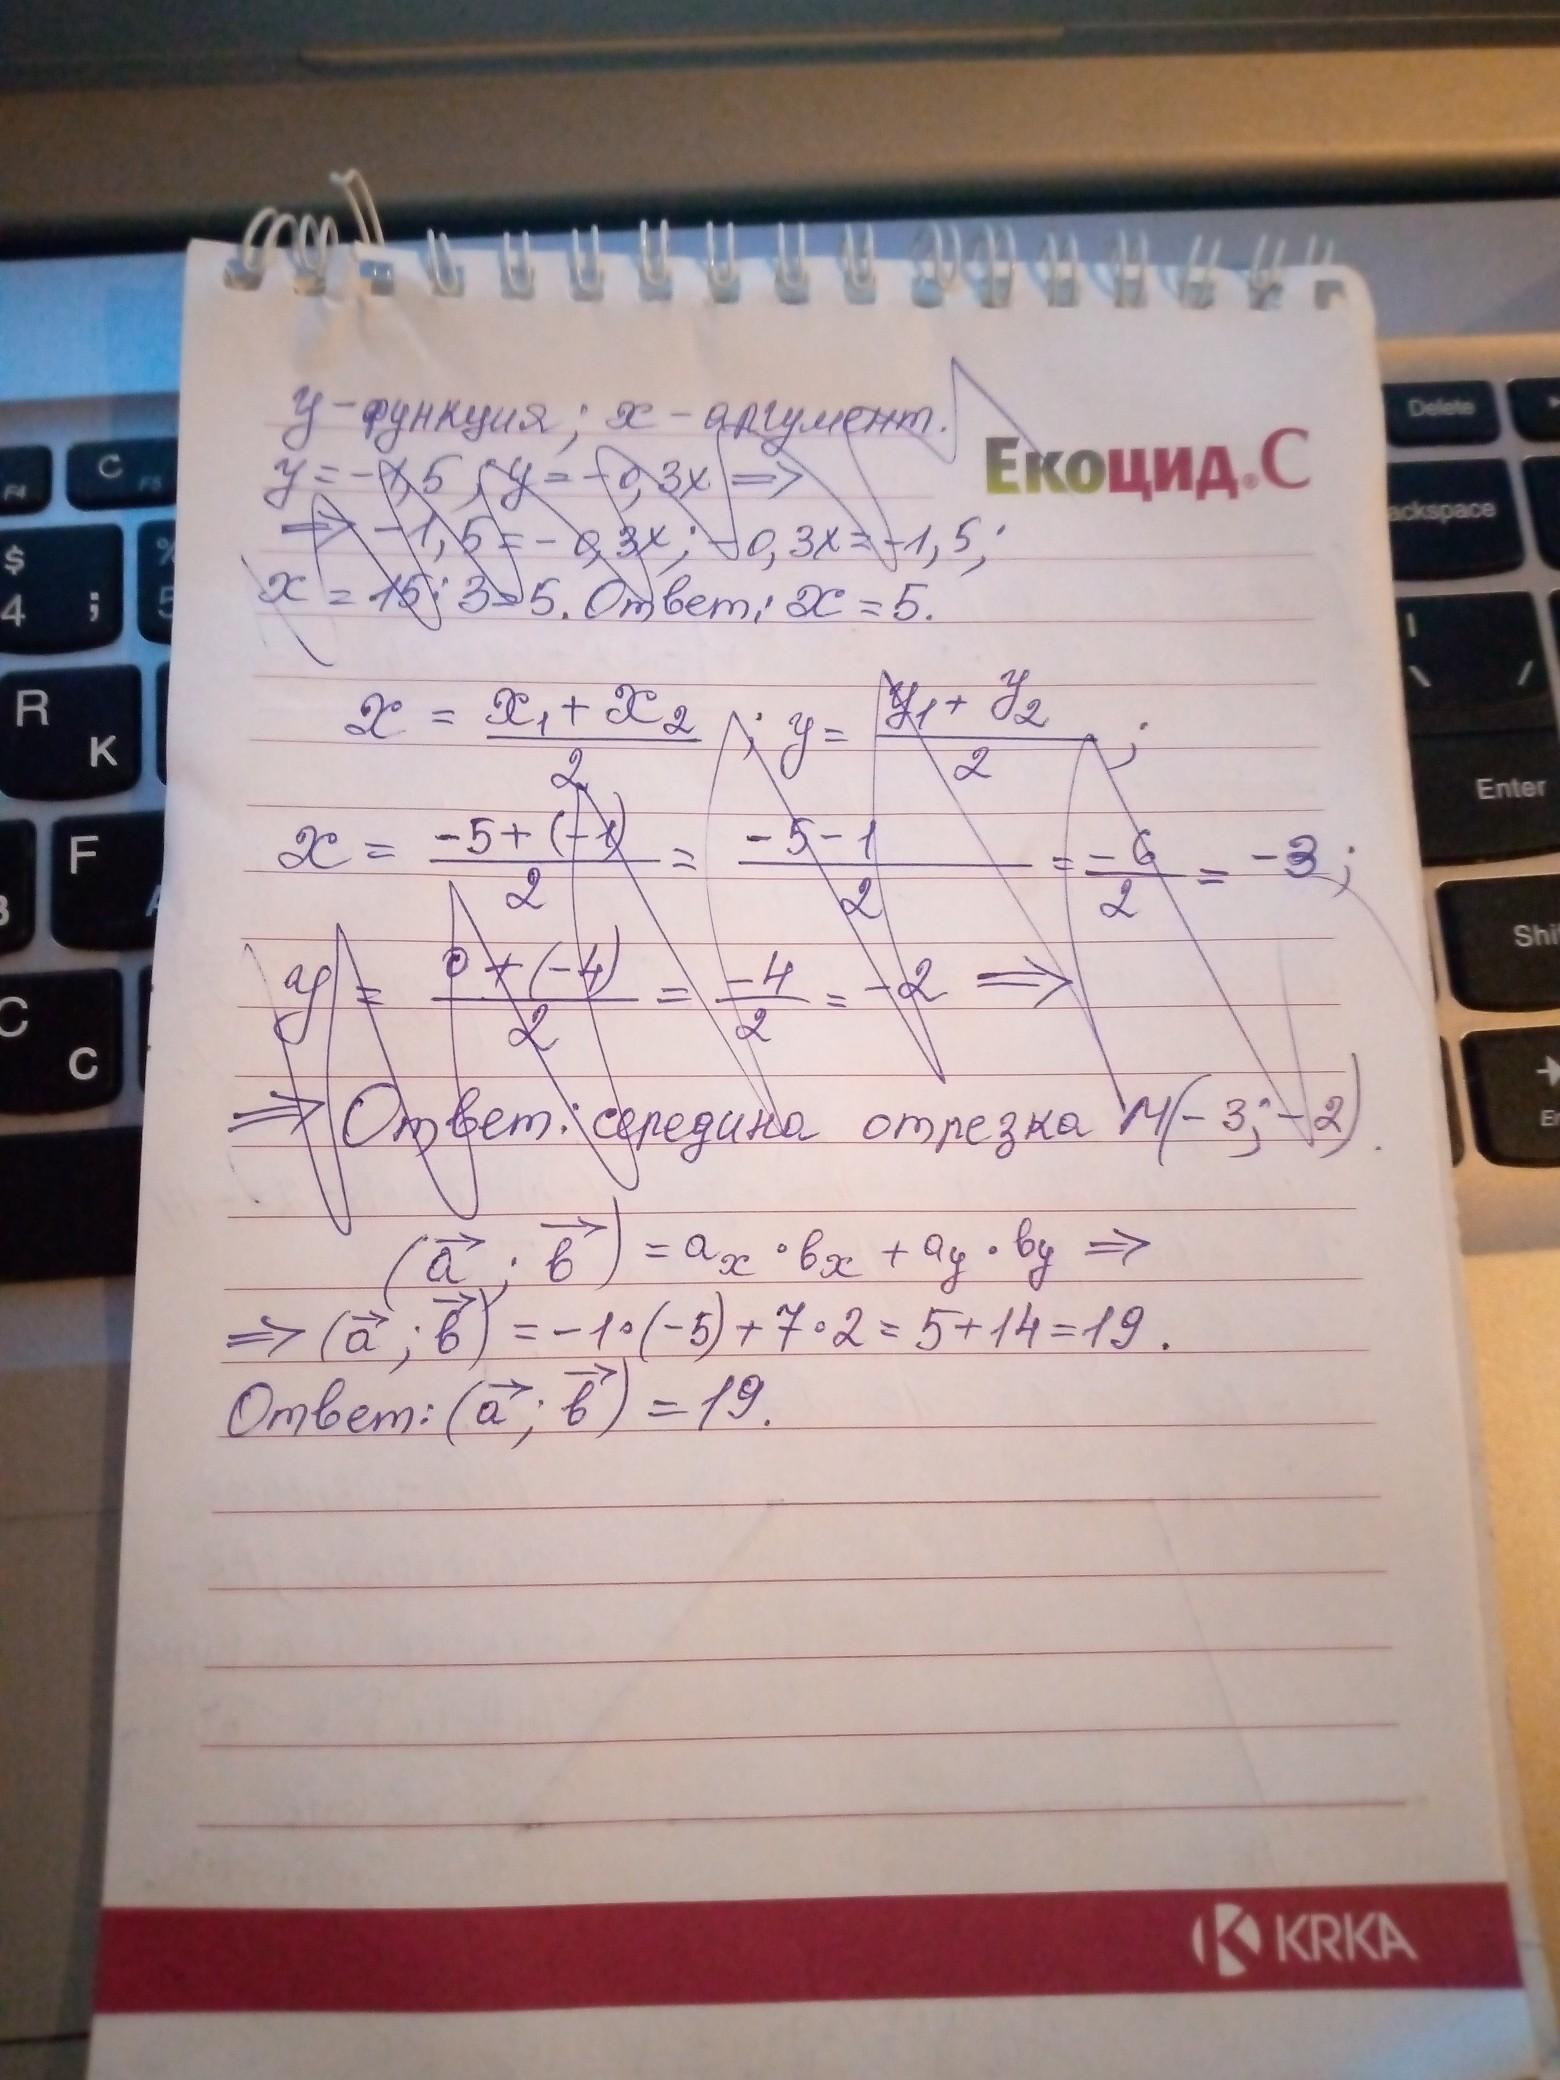 у-функция; x-аргумент.
Екоцид.С
y=-1,5; y=-0,3x ⇒
⇒ -1,5=-0,3x; -0,3x=-1,5;
x=15:3=5. Ответ: x=5.
x = (x₁+x₂)/2; y = (y₁+y₂)/2;
x = (-5+(-1))/2 = (-5-1)/2 = -6/2 = -3;
y = (0+(-4))/2 = -4/2 = -2 ⇒
⇒ Ответ: середина отрезка M(-3;-2).
(a⃗; b⃗) = aₓ·bₓ + a_y·b_y ⇒
⇒ (a⃗; b⃗) = -1·(-5)+7·2=5+14=19.
Ответ: (a⃗; b⃗) = 19.
KRKA
F4
C
F5
$
4
;
%
5
R
K
F
C
C
Delete
Backspace
\
/
Enter
Shi